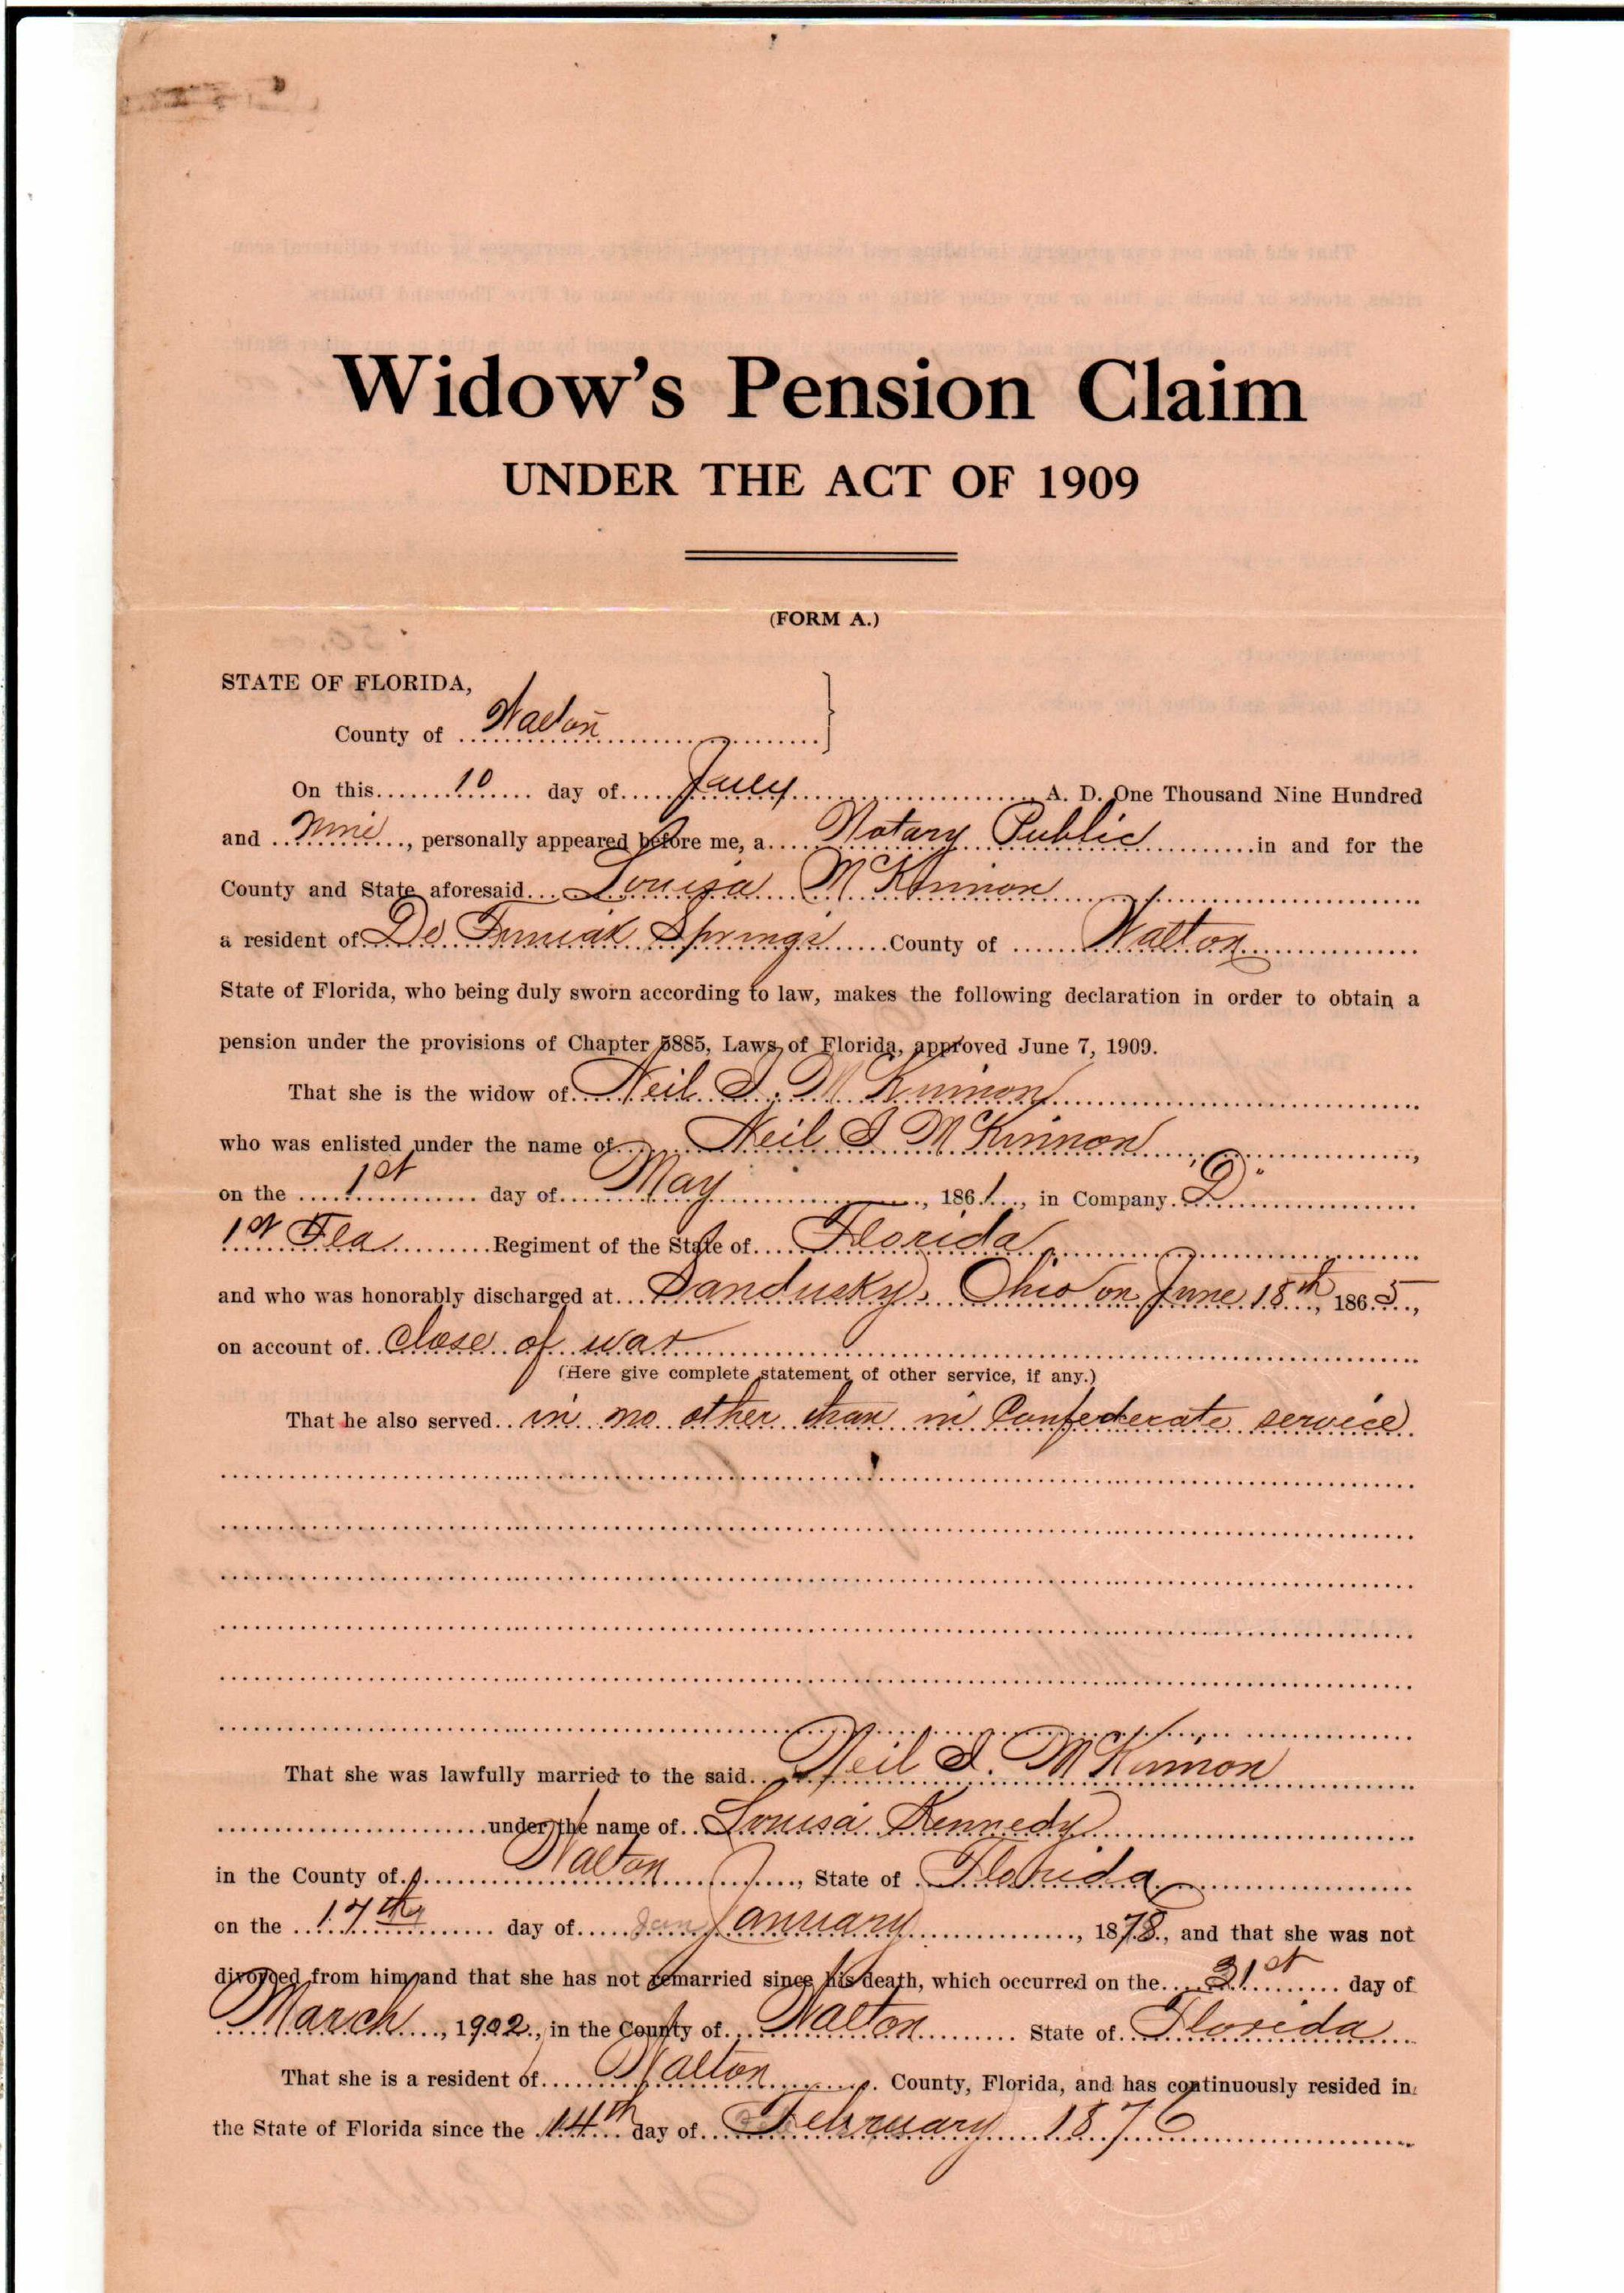 Widow's Pension Claim
UNDER THE ACT OF 1909
(FORM A.)
STATE OF FLORIDA,
County of Walton
On this 10 day of July A. D. One Thousand Nine Hundred
and Nine, personally appeared before me, a Notary Public in and for the
County and State aforesaid Louisa McKinnon
a resident of De Funiak Springs County of Walton
State of Florida, who being duly sworn according to law, makes the following declaration in order to obtain a
pension under the provisions of Chapter 5885, Laws of Florida, approved June 7, 1909.
That she is the widow of Neil I. McKinnon
who was enlisted under the name of Neil I McKinnon,
on the 1st day of May, 1861, in Company "D"
1st Fla Regiment of the State of Florida
and who was honorably discharged at Sandusky, Ohio on June 18th, 1865,
on account of close of war
(Here give complete statement of other service, if any.)
That he also served in no other than in Confederate service
That she was lawfully married to the said Neil I. McKinnon
under the name of Louisa Kennedy
in the County of Walton, State of Florida
on the 17th day of January, 1878, and that she was not
divorced from him and that she has not remarried since his death, which occurred on the 31st day of
March, 1902, in the County of Walton State of Florida
That she is a resident of Walton County, Florida, and has continuously resided in
the State of Florida since the 14th day of February 1876